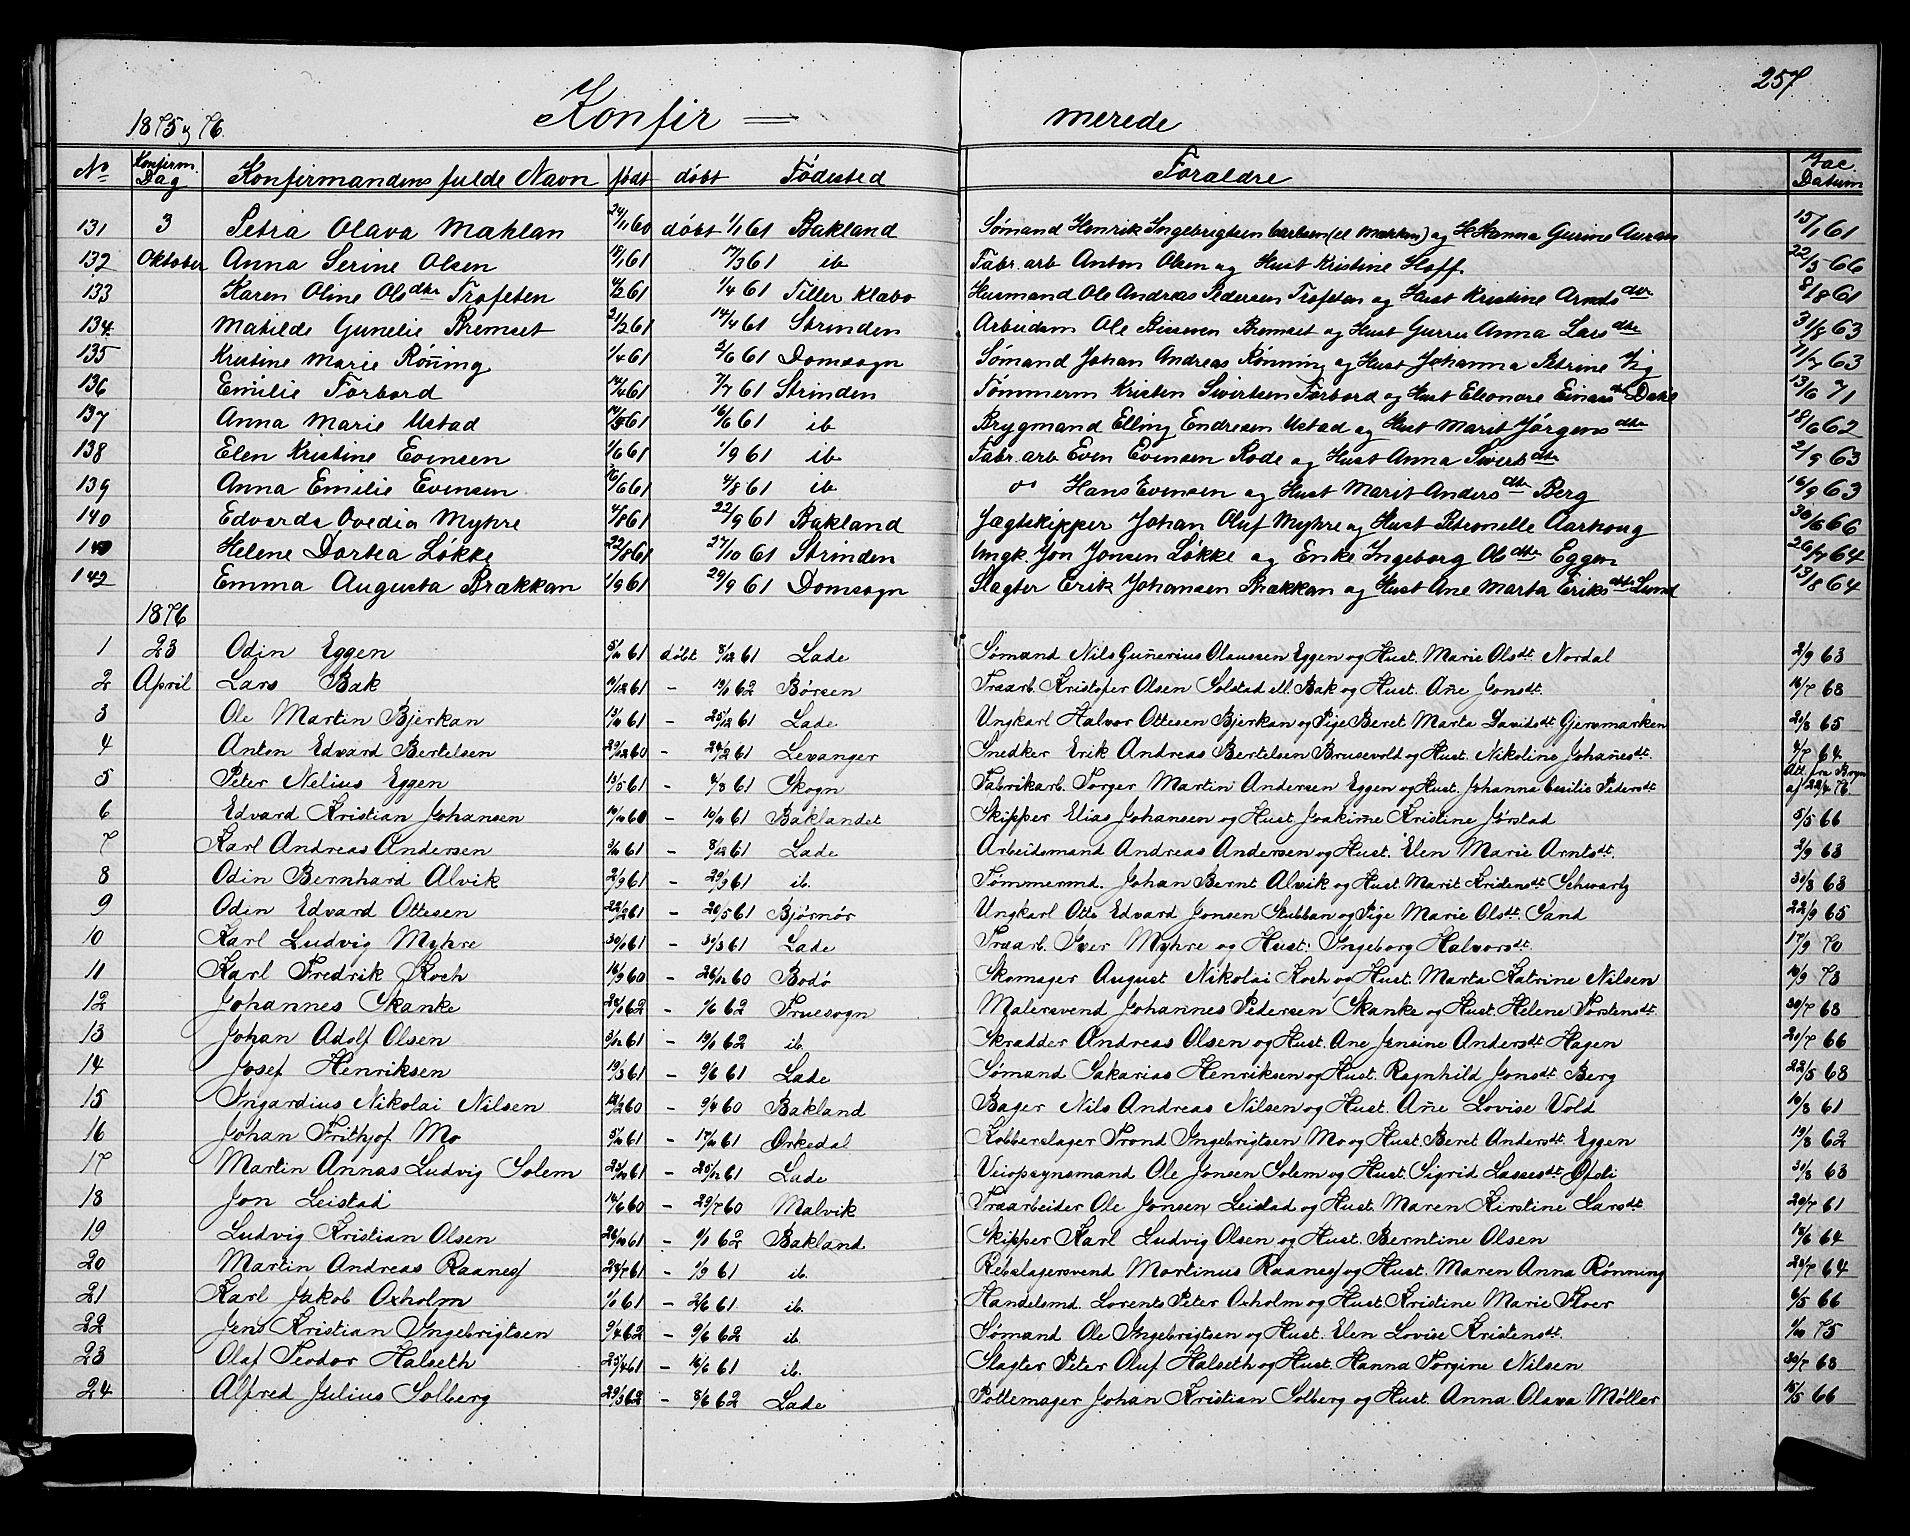 257
1875 og 76.
Konfir = merede
No Konfirm. Dag Konfirmandens fulde Navn født døbt Fødested Forældre Vac. Datum
131 3 Petra Olava Mæhlan 24/11 60 døbt 1/1 61 Bakland Sømand Henrik Ingebrigtsen Carlsen (el Mæhlan) og H Hanna Gurine 15/1 61
132 Oktober Anna Serine Olsen 18/1 61 17/3 61 ib Fabr. arb Anton Olsen og Hust Kristine Hoff 22/5 66
133 Karen Oline Olsdtr Trøfeten 4/2 61 1/4 61 Tiller Klæbo Husmand Ole Andreas Pedersen Trøfeten og Hust Kristine Arntsdtr 8/8 61
134 Matilde Gunelie Bremset 21/2 61 14/4 61 Strinden Arbeidsm Ole Bremset og Hust Guru Anna Larsdtr 31/8 63
135 Kristine Marie Rønning 1/4 61 2/6 61 Domsogn Sømand Johan Andreas Rønning og Hust Johanna Petrine Vig 11/7 63
136 Emilie Forbord 17/4 61 7/7 61 Strinden Tømmerm Kristen Sivertsen Forbord og Hust Eleonore Einarsdtr Dahl 13/6 71
137 Anna Marie Ustad 17/5 61 16/6 61 ib Brygmand Elling Endresen Ustad og Hust Marit Jørgensdtr 18/6 62
138 Elen Kristine Evensen 1/6 61 1/9 61 ib Fabr. arb Even Evensen Rode og Hust Anna Sivertsdtr 2/9 63
139 Anna Emilie Evensen 16/6 61 4/8 61 ib do Hans Evensen og Hust Marit Andersdtr Berg 16/9 63
140 Edvarda Ovedia Myhre 4/8 61 22/9 61 Bakland Jægtskipper Johan Oluf Myhre og Hust Petronelle Aarhoug 30/6 66
141 Helene Dortea Løkke 22/8 61 27/10 61 Strinden Ungk Jon Jonsen Løkke og Enke Ingeborg Olsdtr Eggen 26/7 64
142 Emma Augusta Brækkan 1/9 61 29/9 61 Domsogn Slagter Erik Johansen Brækkan og Hust Ane Marta Eriksdtr Lund 13/8 64
1876
1 23 Odin Eggen 5/10 61 døbt 8/12 61 Lade Sømand Nils Gunnerius Olaussen Eggen og Hust. Marie Olsdt. Nordal 2/9 63
2 April Lars Bak 10/12 61 - 19/1 62 Børsen Træarb. Kristofer Olsen Solstad ell. Bak og Hust. Ane Jonsdt. 16/7 68
3 Ole Martin Bjerkan 13/10 61 - 25/12 61 Lade Ungkarl Halvor Ottesen Bjerkan og Pige Beret Marta Davidsdt Gjersmarken 20/8 65
4 Anton Edvard Bertelsen 29/12 60 - 24/2 61 Levanger Snedker Erik Andreas Bertelsen Brusevold og Hust. Nikoline Johannesdt. 4/7 64
5 Peter Nelius Eggen 13/5 61 - 4/8 61 Skogn Fabrikarb. Torger Martin Andersen Eggen og Hust. Johanna Cesilie Pedersdt Att. fra Skogn af 22/4 76
6 Edvard Kristian Johansen 10/10 60 - 10/11 61 Baklandet Skipper Elias Johansen og Hust. Joakime Kristine Jørstad 5/5 66
7 Karl Andreas Andersen 3/10 61 - 8/12 61 Lade Arbeidsmand Andreas Andersen og Hust. Elen Marie Arntsdt. 2/9 63
8 Odin Bernhard Alvik 2/9 61 - 29/9 61 ib. Tømmermd. Johan Bernt Alvik og Hust. Marit Kristensdt Schwartz 31/8 63
9 Odin Edvard Ottesen 22/2 61 - 20/5 61 Bjørnør Ungkarl Otto Edvard Jonsen Stubban og Pige Marie Olsdt. Sand 22/9 65
10 Karl Ludvig Myhre 30/1 61 - 31/3 61 Lade Træarb. Iver Myhre og Hust. Ingeborg Halvorsdt. 17/9 70
11 Karl Fredrik Koch 16/9 60 - 26/12 60 Bodø Skomager August Nikolai Koch og Hust. Marta Katrine Nilsen 10/9 73
12 Johannes Skanke 28/1 62 - 1/6 62 Fruesogn Malersvend Johannes Pedersen Skanke og Hust. Helene Torstensdt. 30/7 68
13 Johan Adolf Olsen 3/12 61 - 19/1 62 ib. Skrædder Andreas Olsen og Hust. Ane Jensine Andersdt Hagen 20/7 66
14 Josef Henriksen 19/3 61 - 9/6 61 Lade Sømand Sakarias Henriksen og Hust. Ragnhild Jonsdt. Berg 22/5 68
15 Ingardius Nikolai Nilsen 12/2 60 - 9/4 60 Bakland Bager Nils Andreas Nilsen og Hust. Ane Lovise Vold 10/8 61
16 Johan Frithjof Mo 5/10 61 - 17/11 61 Ørkedal Kobberslager Trond Ingebrigtsen Mo og Hust. Beret Andersdt. Eggen 19/8 62
17 Martin Annas Ludvig Solem 23/10 61 - 25/12 61 Lade Veiopsynsmand Ole Jonsen Solem og Hust. Sigrid Lassesdt Øfsti 30/8 63
18 Jon Leistad 14/6 60 - 29/7 60 Malvik Træarbeider Ole Jonsen Leistad og Hust. Maren Kirstine Larsdt 29/7 61
19 Ludvig Kristian Olsen 26/10 61 - 9/1 62 Bakland Skipper Karl Ludvig Olsen og Hust. Berntine Olsen 18/6 64
20 Martin Andreas Raanes 28/7 61 - 1/9 61 ib. Rebslagersvend Martinus Raanes og Hust. Maren Anna Rønning 28/7 64
21 Karl Jakob Oxholm 1/1 61 - 2/6 61 ib. Handelsmd. Lorents Peter Oxholm og Hust. Kristine Marie Floer 6/5 66
22 Jens Kristian Ingebrigtsen 9/4 62 - 9/6 62 ib. Sømand Ole Ingebrigtsen og Hust. Elen Lovise Kristensdt. 1/10 75
23 Olaf Teodor Halseth 25/4 61 - 16/6 61 ib. Slagter Peter Oluf Halseth og Hust. Hanna Torgine Nilsen 30/7 68
24 Alfred Julius Solberg 29/3 62 - 8/6 62 Lade Pottemager Johan Kristian Solberg og Hust. Anna Olava Møller 15/5 66